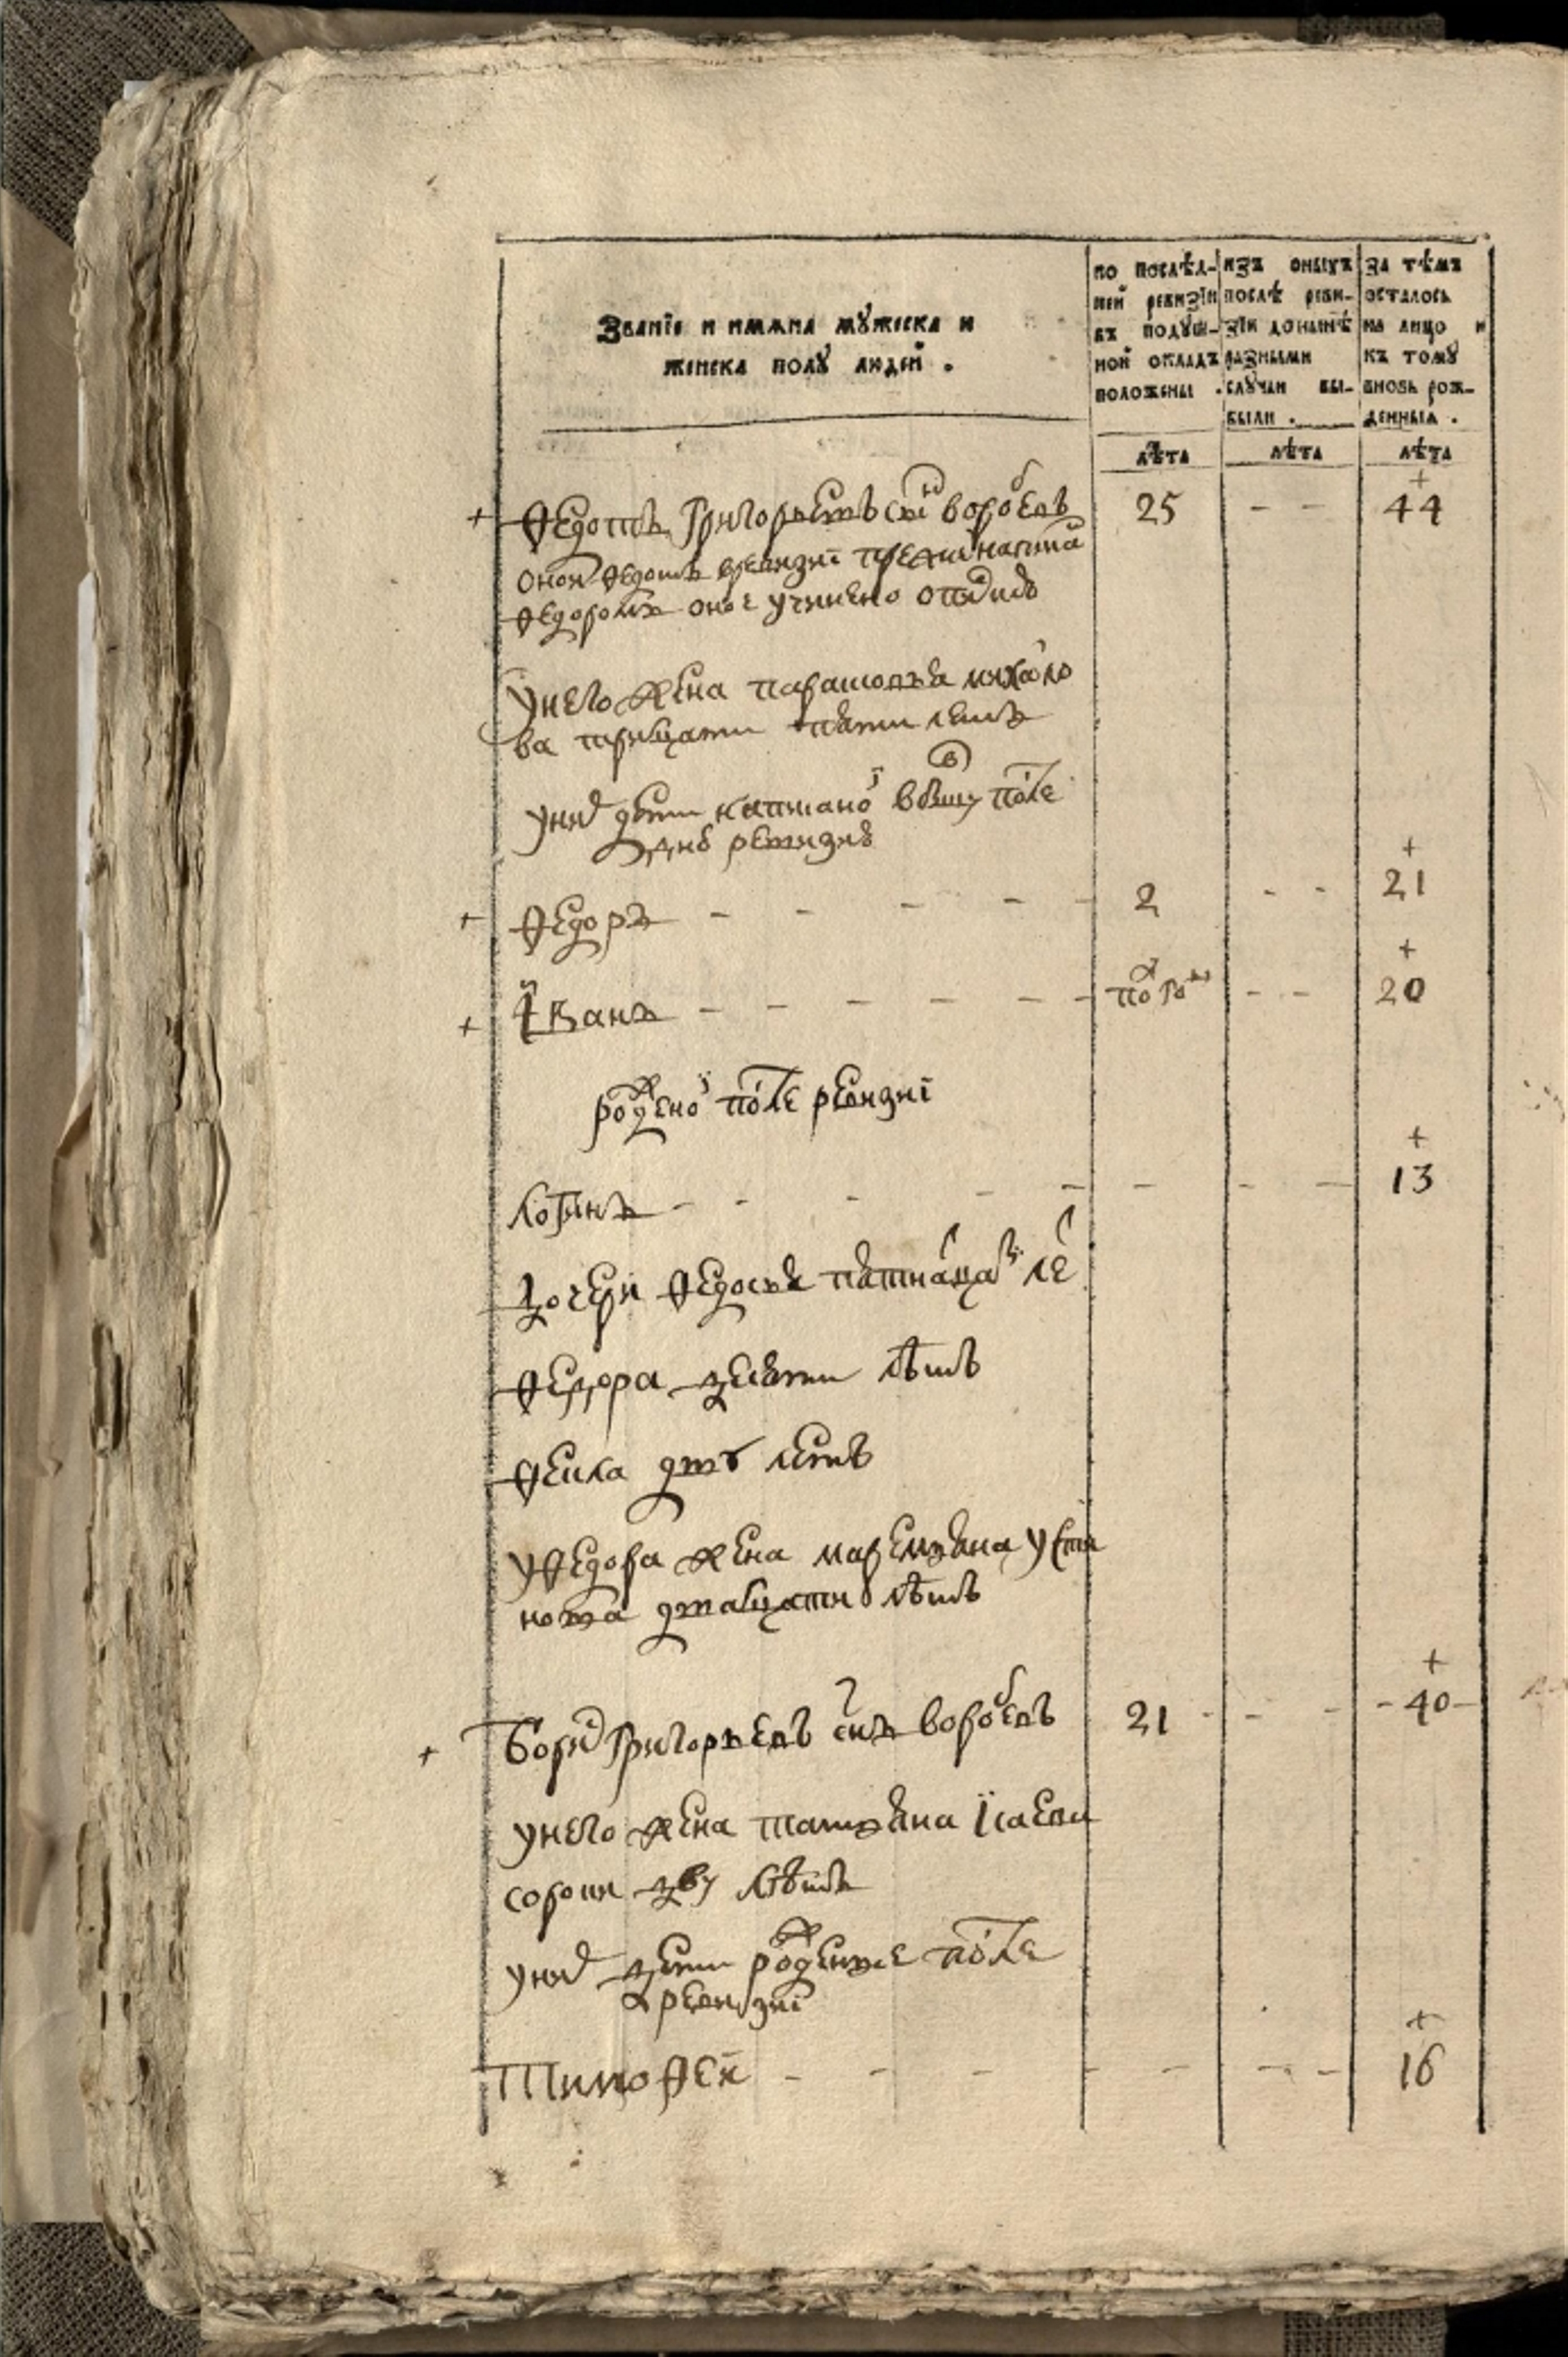 Званїе и имѧна мꙋжеска и
женска полꙋ людей .
по послѣд-
ней ревизїи
въ подꙋш-
ной окладъ
положены .
изъ оныхъ
послѣ реви-
зїи донынѣ
разными
слꙋчаи вы-
были .
за тѣмъ
осталось
на лицо и
къ томꙋ
вновь рож-
денныѧ .
лѣта
лѣта
лѣта
+ Ѳедотъ Григорьевъ снъ воробевъ 25 - - + 44
оной Ѳедотъ вревизиї
Ѳедоромъ оное учинено
унего жена парасковья михаило
ва тритцати пяти летъ
уних дети написаной впосле
ревизиї
+ Ѳедоръ - - - - - 2 - - + 21
+ Їванъ - - - - - полгоду - - + 20
рожденой после ревизиї
Логинъ - - - - - - - - + 13
дочери Ѳедосья пятнатцати ле
Ѳедора девяти лѣтъ
Ѳекла дву летъ
уѲедора жена маремьяна усти
нова дватцати лѣтъ
+ Борис Григорьевъ снъ воробевъ 21 - - - + 40
унего жена татьяна Їсаева
сорока дву лѣтъ
уних дети рожденые после
ревизиї
Тимоѳей - - - - - - - + 16